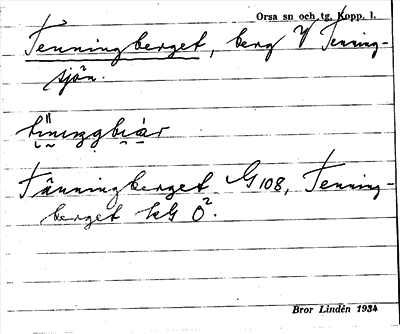 Orsa sn och tg, Kopp. l.
Tenningberget, berg V Tenning-
sjön.
Tänningberget G 108, Tenning-
berget kG Ö².
Bror Lindén 1934